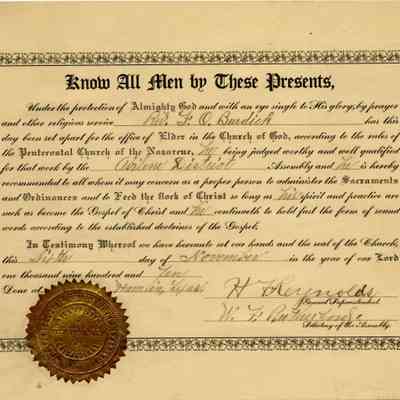 Know All Men by These Presents,
Under the protection of Almighty God and with an eye single to His glory, by prayer
and other religious service Rev. F. O. Burdick has this
day been set apart for the office of Elder in the Church of God, according to the rules of
the Pentecostal Church of the Nazarene, he being judged worthy and well qualified
for that work by the Abilene District Assembly and he is hereby
recommended to all whom it may concern as a proper person to administer the Sacraments
and Ordinances and to Feed the flock of Christ so long as his spirit and practice are
such as become the Gospel of Christ and he continueth to hold fast the form of sound
words according to the established doctrines of the Gospel.
In Testimony Whereof we have hereunto set our hands and the seal of the Church,
this Sixth day of November in the year of our Lord
one thousand nine hundred and Ten
Done at Hamlin, Texas
H F Reynolds
General Superintendent
W. F.
Secretary of the Assembly.